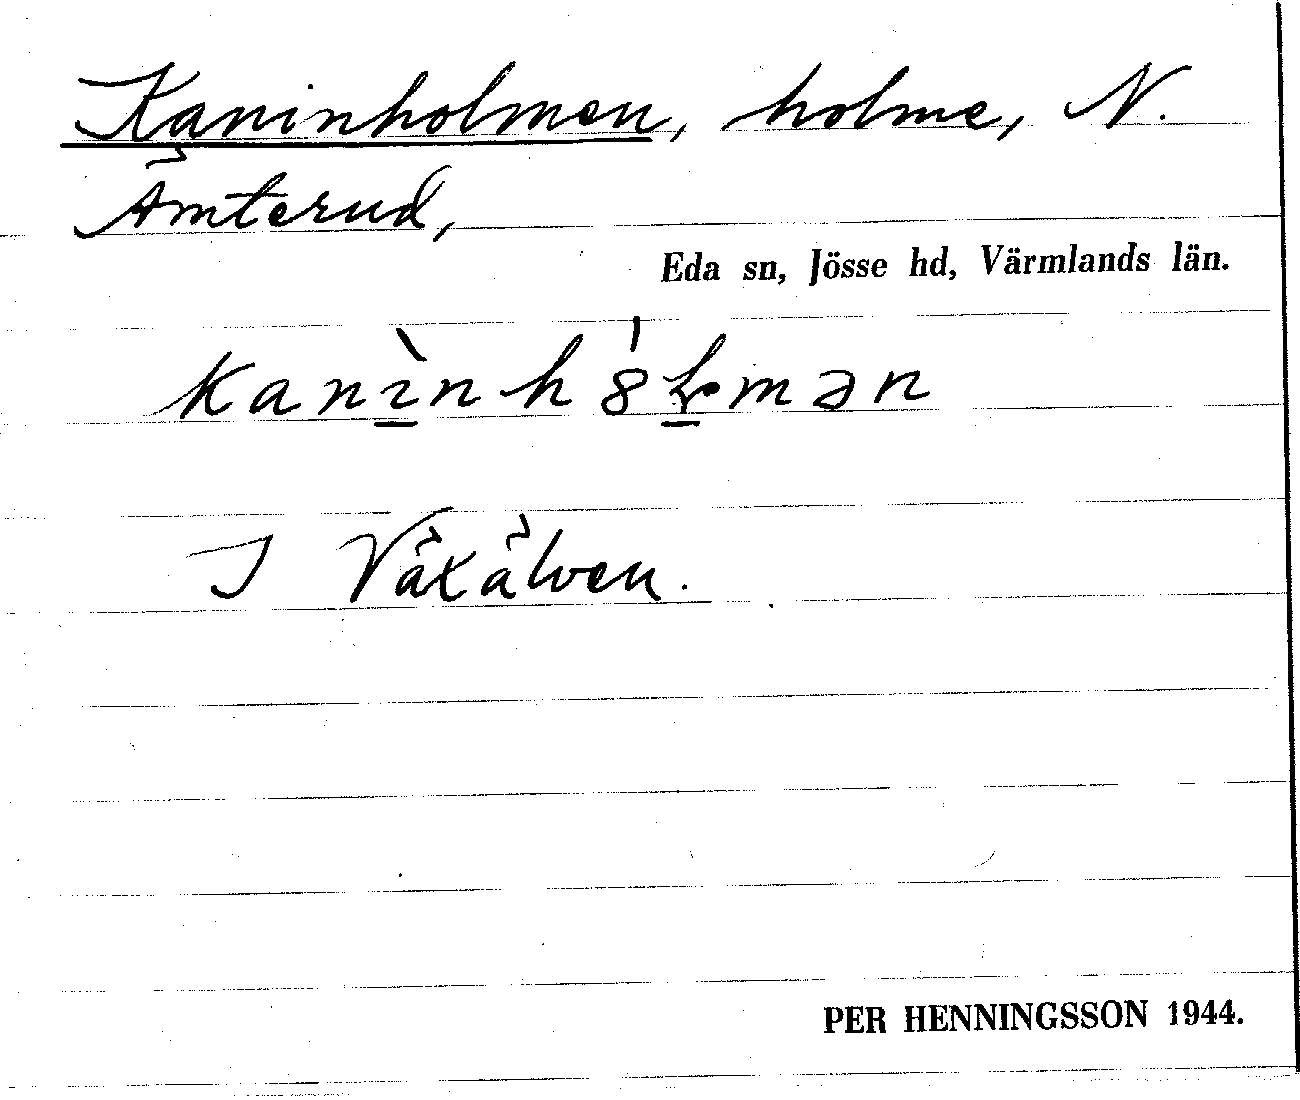 Kaninholmen, holme, N.
Ämterud,
Eda sn, Jösse hd, Värmlands län.
I Växälven.
PER HENNINGSSON 1944.